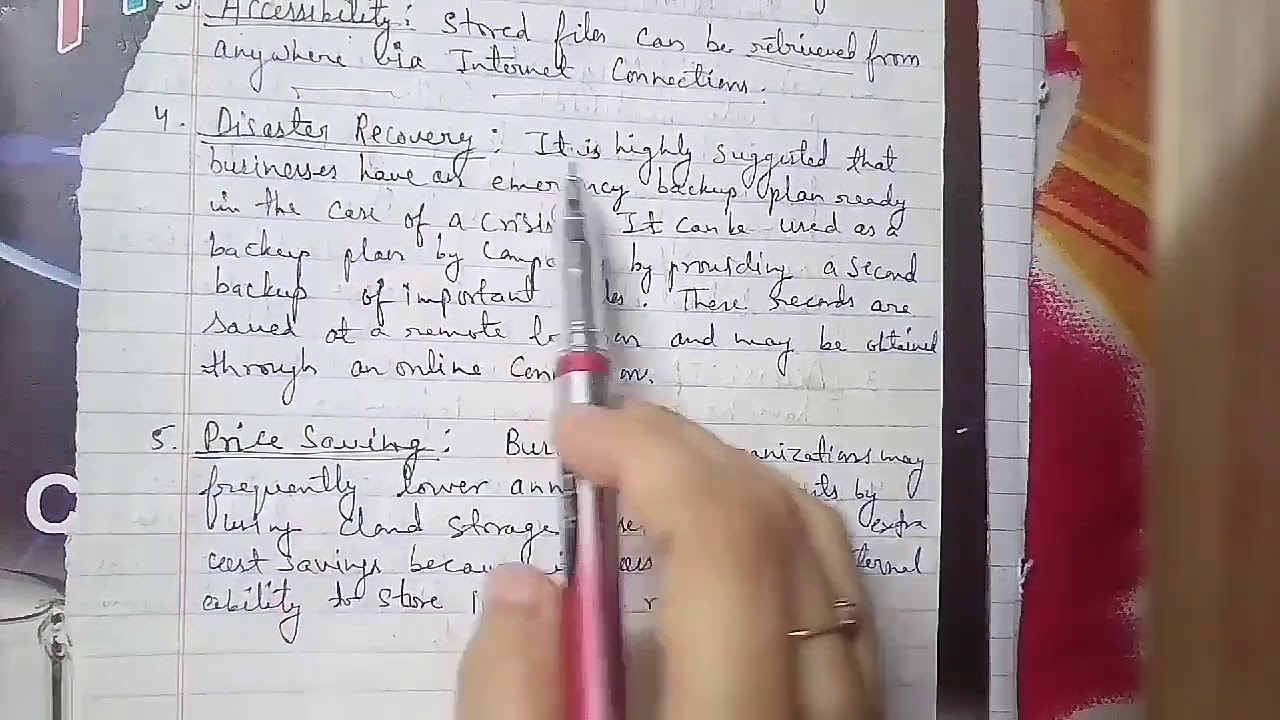 3. Accessibility: Stored files can be retrieved from
anywhere via Internet Connections.
4. Disaster Recovery: It is highly suggested that
businesses have an emer ncy backup plan ready
in the case of a crisis It can be used as a
backup plan by Compa by providing a second
backup of important les. These records are
saved at a remote lo ion and may be obtained
through an online Con on.
5. Price Saving: Bus anizations may
frequently lower ann its by
using cloud storage extra
cost savings because ternal
ability to store
C